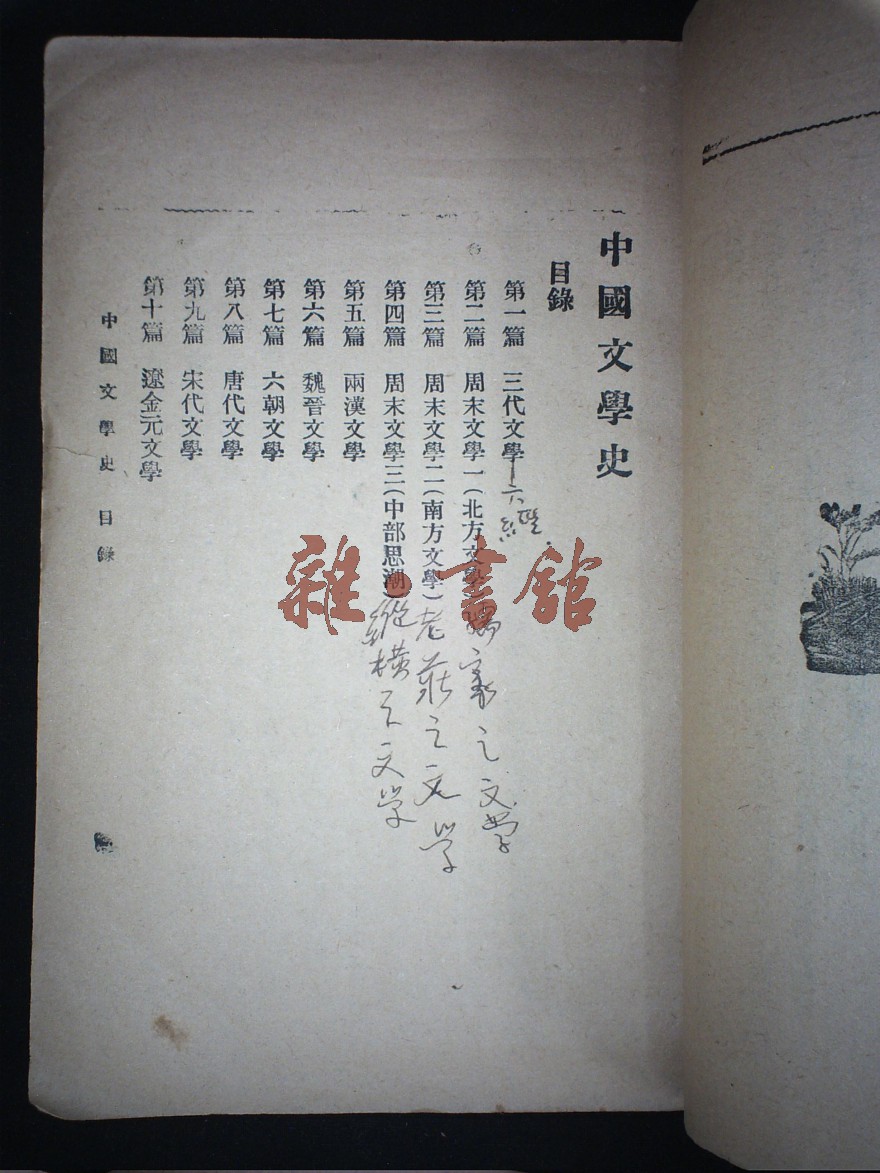 中國文學史
目錄
第一篇 三代文學—六經
第二篇 周末文學一(北方文學)儒家之文学
第三篇 周末文學二(南方文學)老莊之文学
第四篇 周末文學三(中部思潮)縱橫之文学
第五篇 兩漢文學
第六篇 魏晉文學
第七篇 六朝文學
第八篇 唐代文學
第九篇 宋代文學
第十篇 遼金元文學
中國文學史 目錄
雜·書館